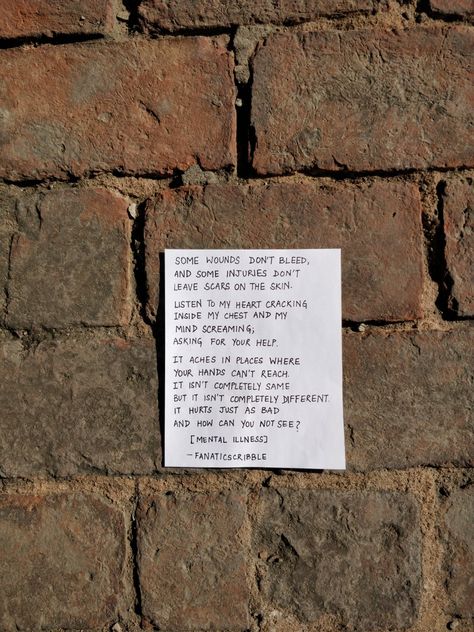 SOME WOUNDS DON'T BLEED,
AND SOME INJURIES DON'T
LEAVE SCARS ON THE SKIN.
LISTEN TO MY HEART CRACKING
INSIDE MY CHEST AND MY
MIND SCREAMING;
ASKING FOR YOUR HELP.
IT ACHES IN PLACES WHERE
YOUR HANDS CAN'T REACH.
IT ISN'T COMPLETELY SAME
BUT IT ISN'T COMPLETELY DIFFERENT.
IT HURTS JUST AS BAD
AND HOW CAN YOU NOT SEE?
[MENTAL ILLNESS]
- FANATICSCRIBBLE